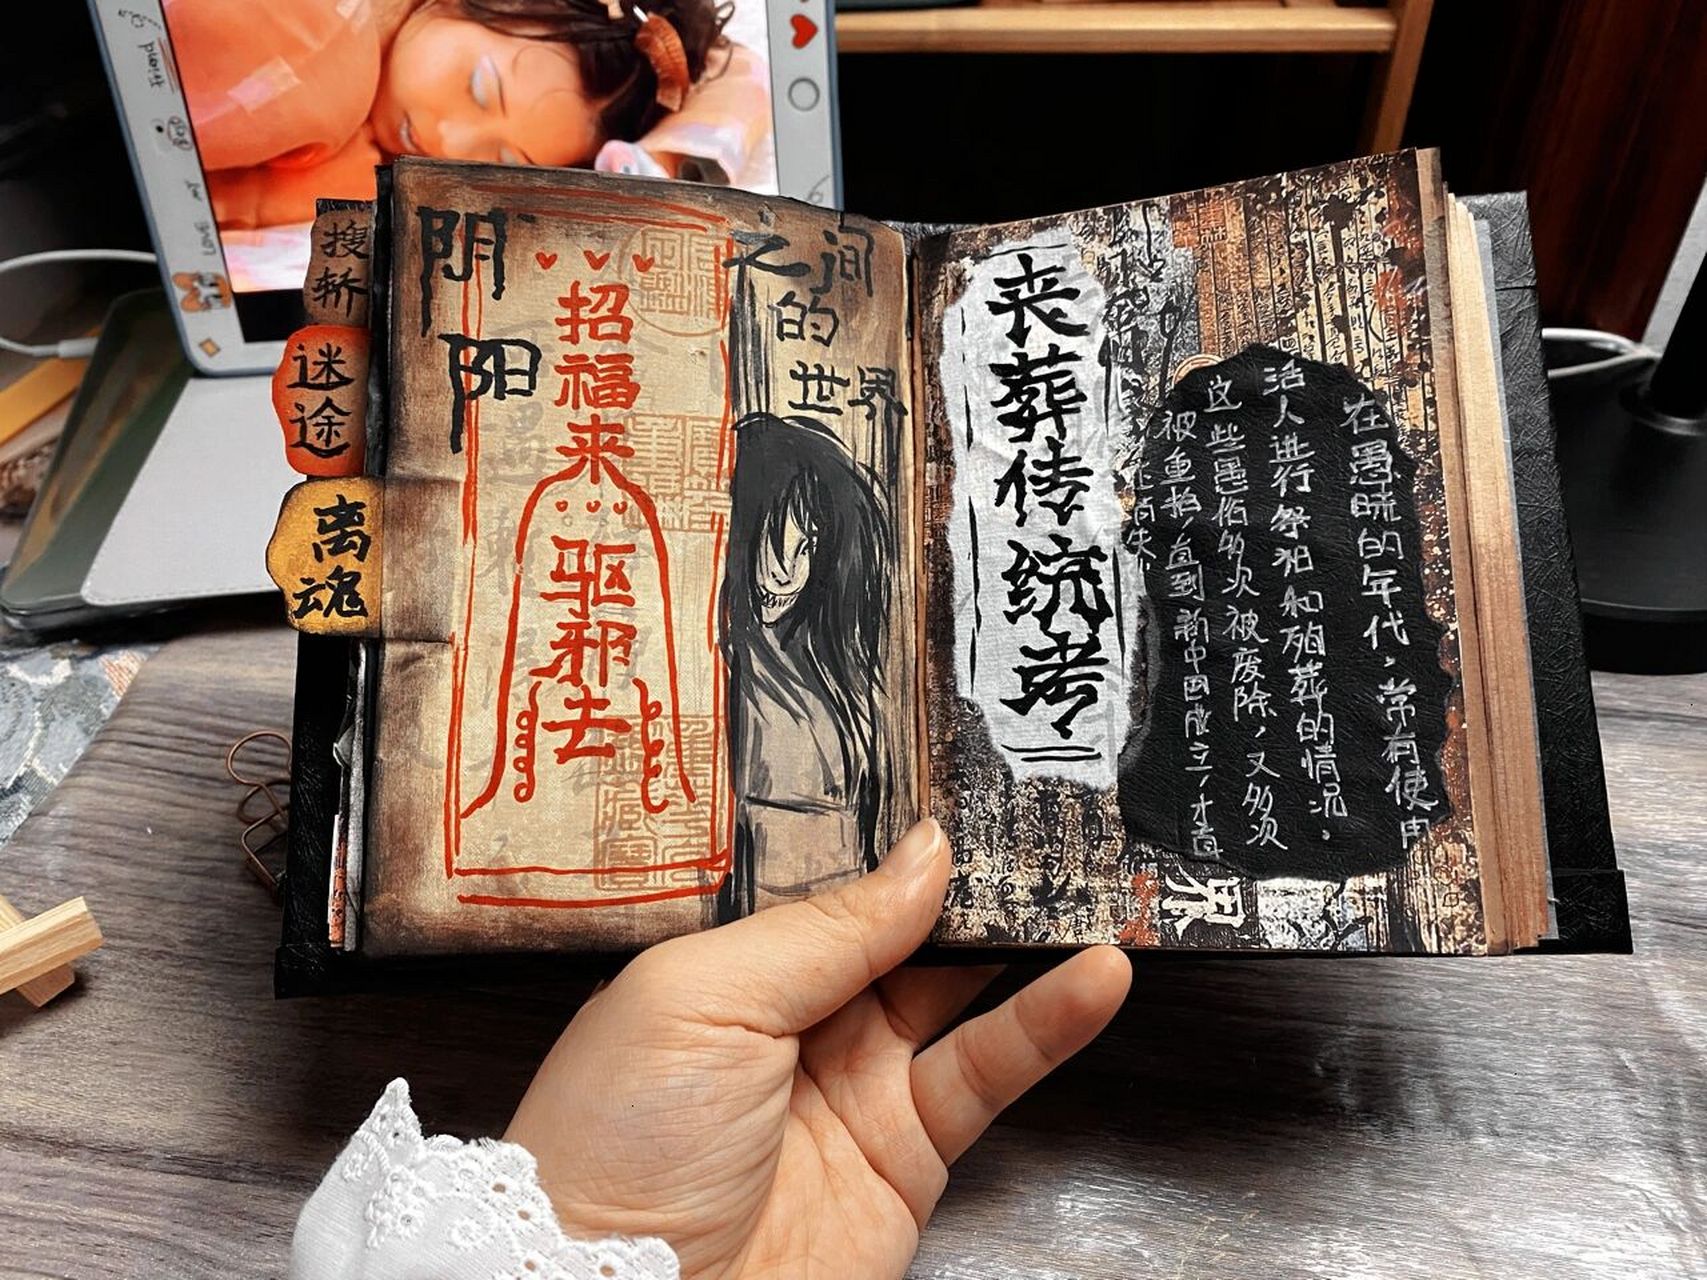 搜
轿
迷途
离魂
阴阳
之间
的
世界
招福来
驱邪去
丧葬传统考
在愚昧的年代，常有使用
活人进行祭祀和殉葬的情况。
这些愚俗多次被废除，又多次
被重拾，直到新中国成立，才真
正消失
界